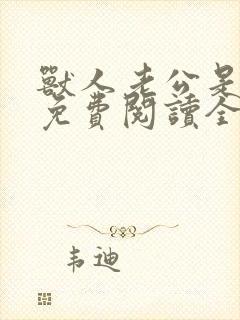 獸人老公是
免費閱讀全
韦迪